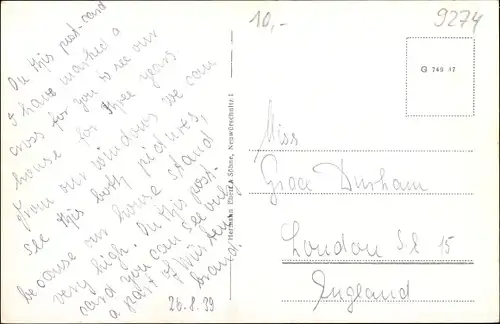 On this post-card
I have marked a
cross for you to see our
house for three years
from our windows we can
see this both pictures,
because our house stand
very high. On this post-
card you can see only
a part of
brand.
26.8.39
10,-
9274
G 749 37
Söhne, Neuwürschnitz i
Miss
Grace Durham
London S.E. 15
England